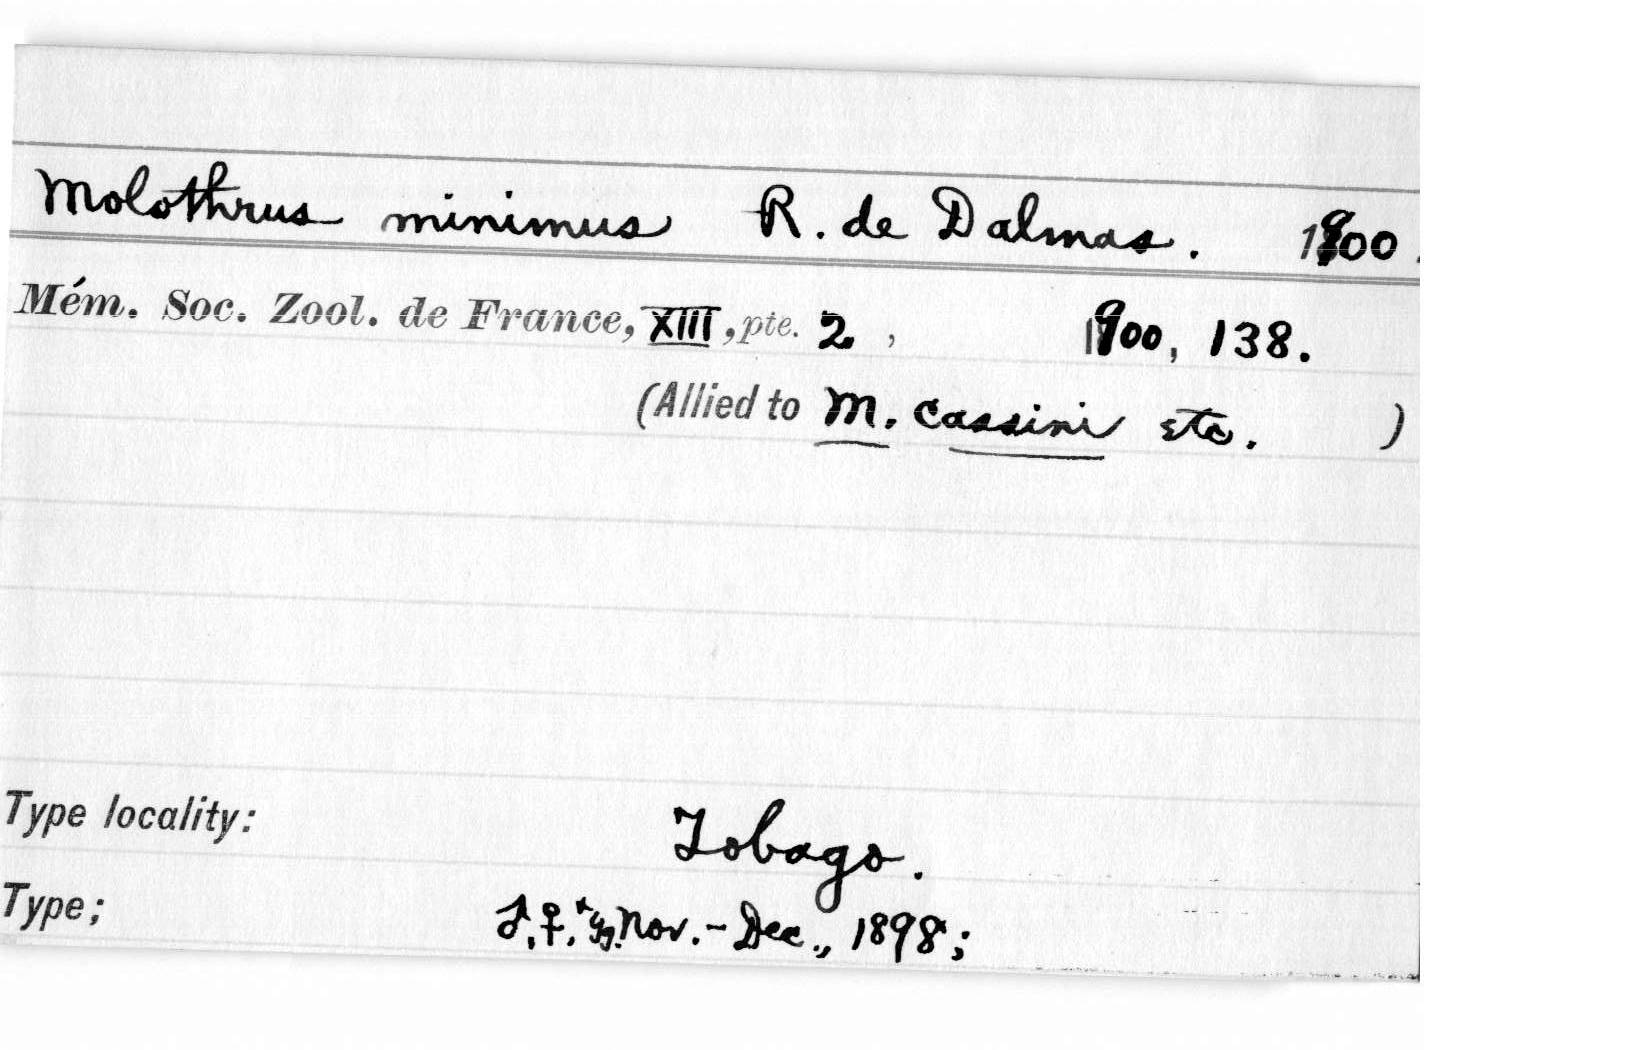 Molothrus minimus R. de Dalmas. 1900.
Mém. Soc. Zool. de France, XIII, pte. 2, 1900, 138.
(Allied to M. cassini etc. )
Type locality: Tobago.
Type; ♂, ♀, + yg. Nov. - Dec., 1898;